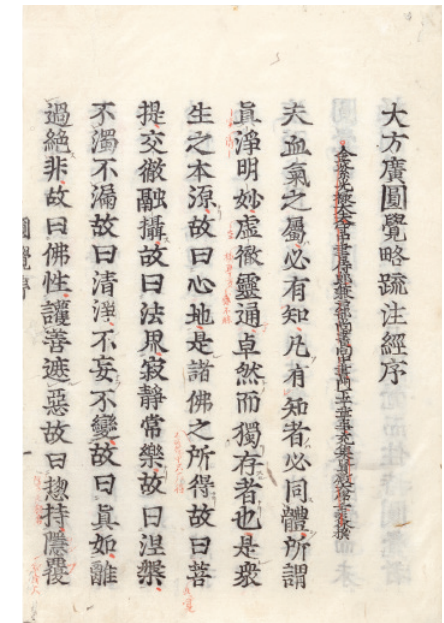 大方廣圓覺略疏注經序
金紫光祿大夫守中書侍郎兼
尚書同中書門下平章事充集賢殿
夫血氣之屬必有知凡有知者必同體所謂
眞淨明妙虛徹靈通卓然而獨存者也是衆
生之本源故曰心地是諸佛之所得故曰菩
提交徹融攝故曰法界寂靜常樂故曰涅槃
不濁不漏故曰清淨不妄不變故曰眞如離
過絕非故曰佛性護善遮惡故曰揔持隱覆
圓覺序